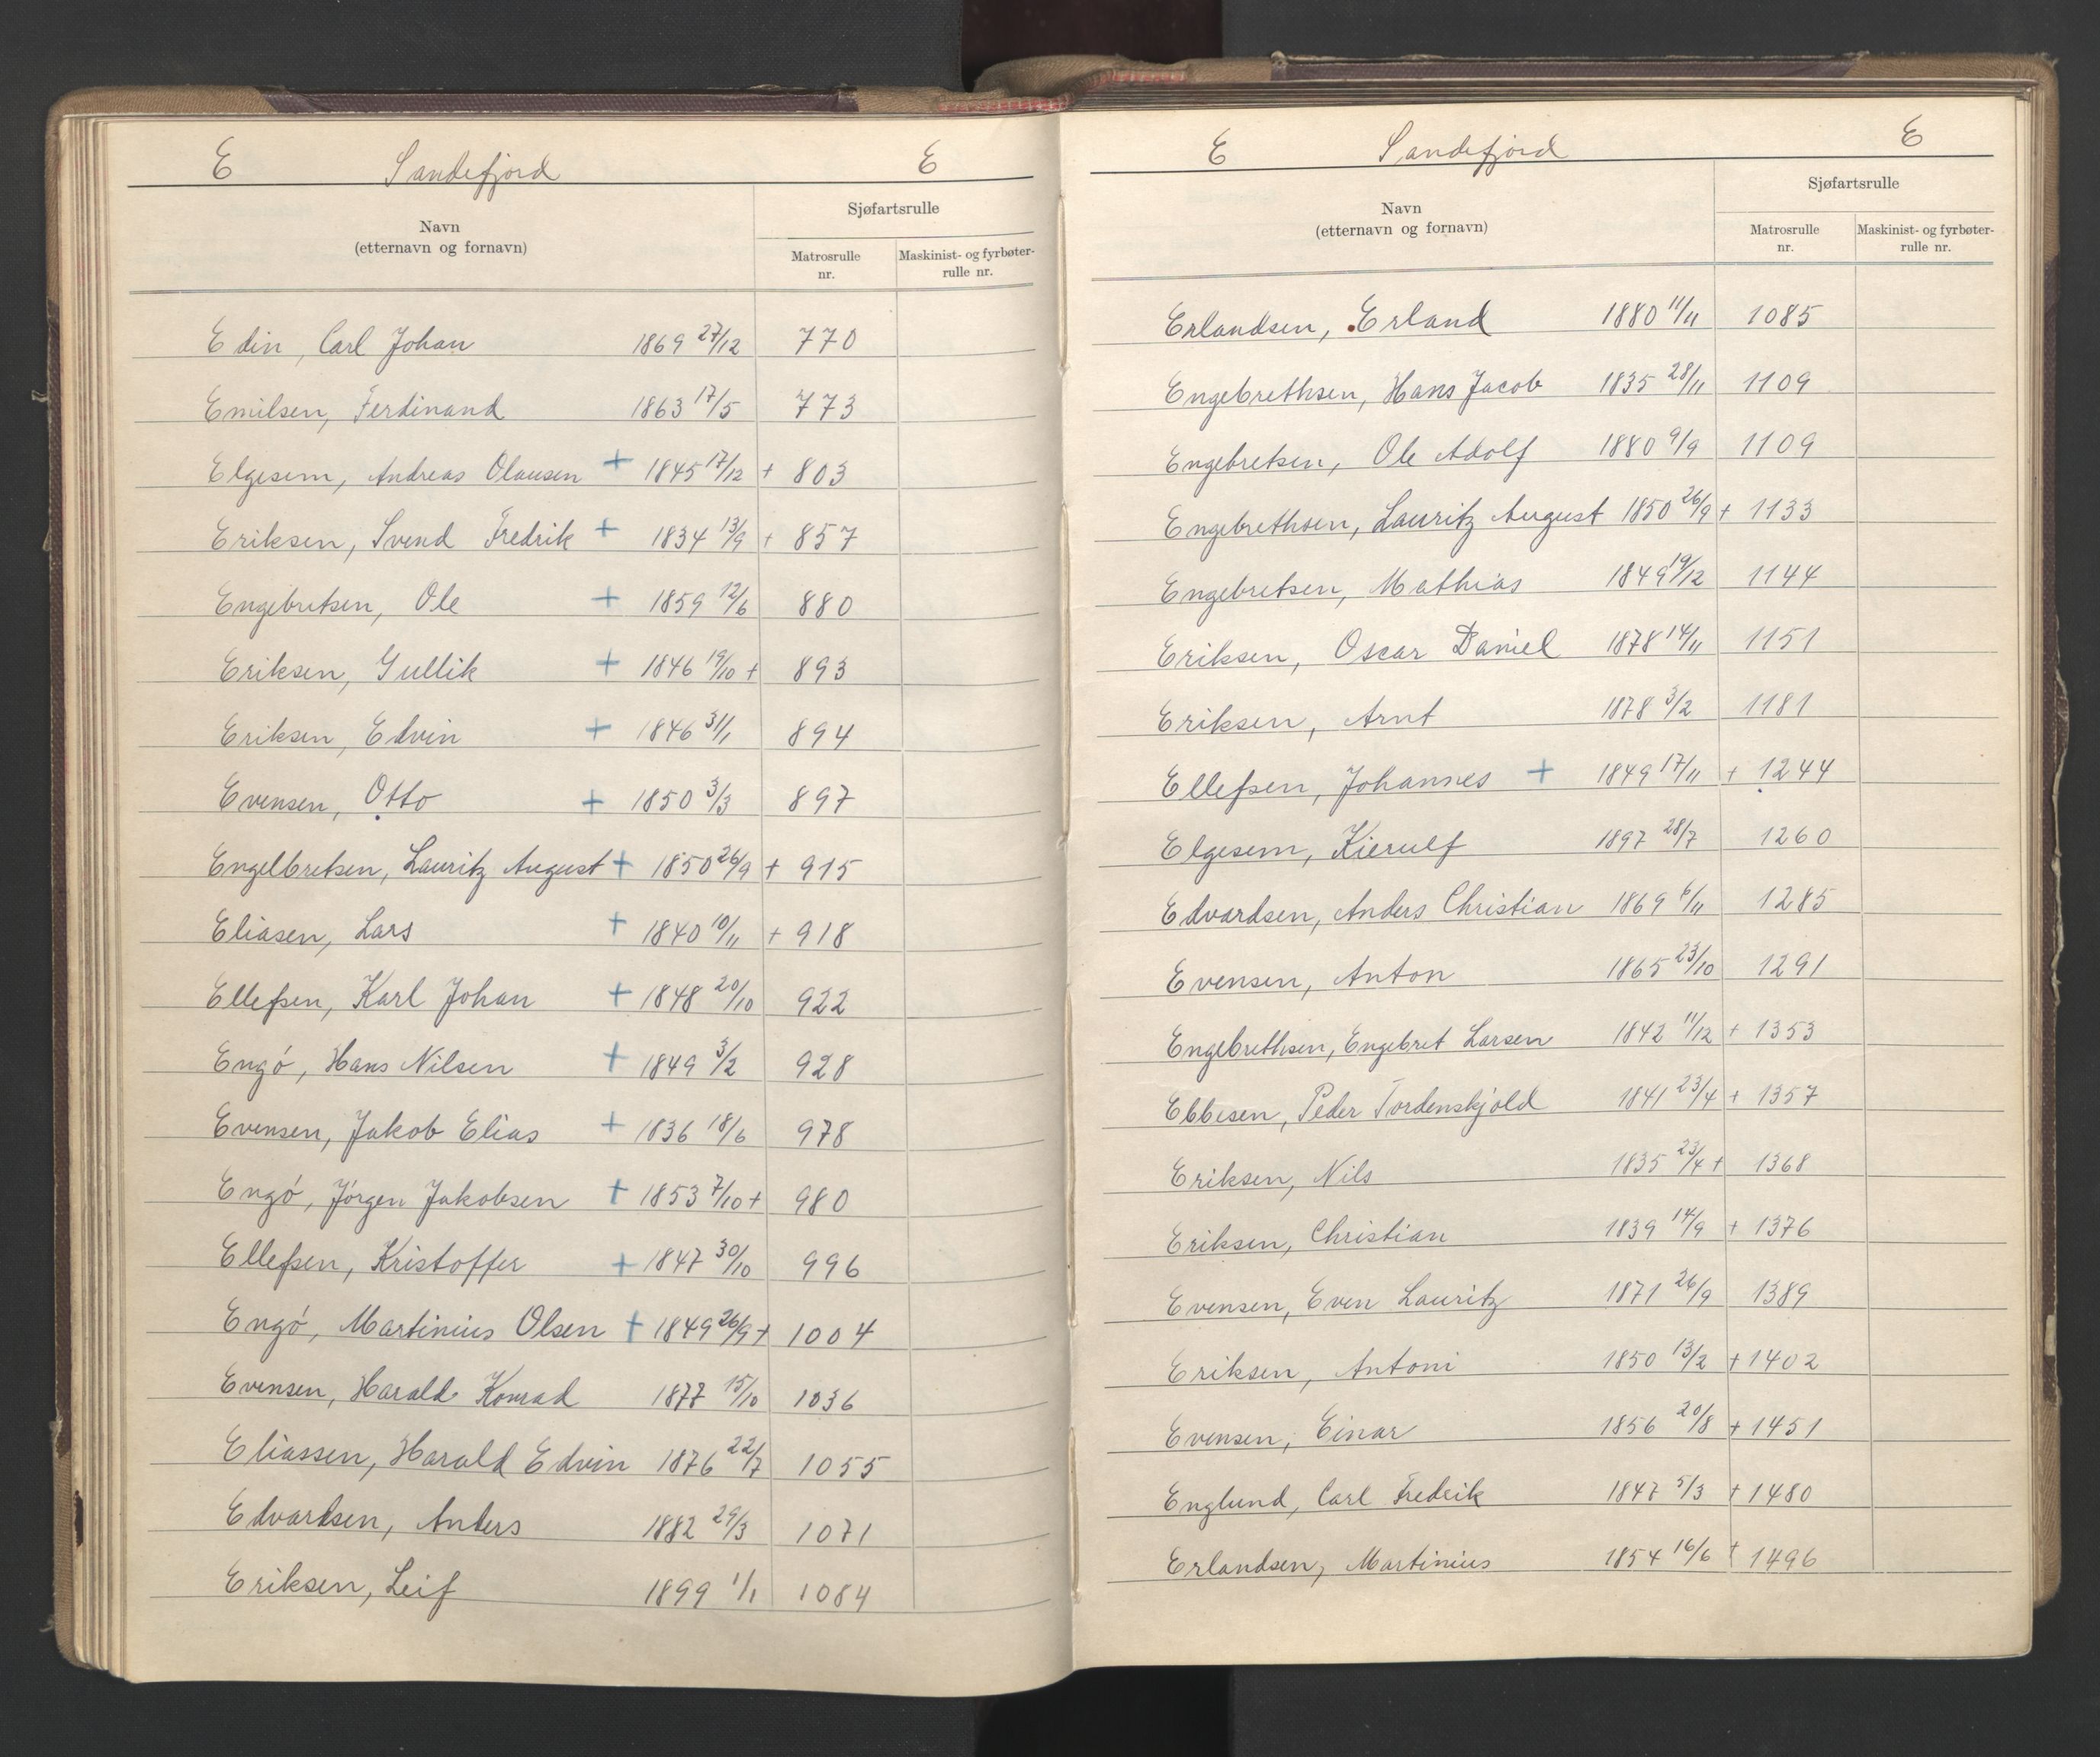 E Sandefjord E
Sjøfartsrulle
Navn
(etternavn og fornavn)
Matrosrulle nr.
Maskinist- og fyrbøter-rulle nr.
Edin, Carl Johan 1869 27/12 770
Emilsen, Ferdinand 1863 17/5 773
Elgesem, Andreas Olausen + 1845 17/12 + 803
Eriksen, Svend Fredrik + 1834 13/9 + 857
Engebretsen, Ole + 1859 12/6 880
Eriksen, Gullik + 1846 19/10 + 893
Eriksen, Edvin + 1846 31/1 894
Evensen, Otto + 1850 3/3 897
Engelbretsen, Lauritz August + 1850 26/9 + 915
Eliasen, Lars + 1840 10/11 + 918
Ellefsen, Karl Johan + 1848 20/10 922
Engó, Hans Nilsen + 1849 3/2 928
Evensen, Jakob Elias + 1836 18/6 978
Engó, Jórgen Jakobsen + 1853 7/10 + 980
Ellefsen, Kristoffer + 1847 30/10 996
Engó, Martinius Olsen + 1849 26/9 + 1004
Evensen, Harald Konrad 1877 15/10 1036
Eliassen, Harald Edvin 1876 22/7 1055
Edvardsen, Anders 1882 29/3 1071
Eriksen, Leif 1899 1/1 1084
E Sandefjord E
Sjøfartsrulle
Navn
(etternavn og fornavn)
Matrosrulle nr.
Maskinist- og fyrbøter-rulle nr.
Erlandsen, Erland 1880 11/11 1085
Engebrethsen, Hans Jacob 1835 28/11 1109
Engebretsen, Ole Adolf 1880 9/9 1109
Engebrethsen, Lauritz August 1850 26/9 + 1133
Engebretsen, Mathias 1849 19/12 1144
Eriksen, Oscar Daniel 1878 14/11 1151
Eriksen, Arnt 1878 3/2 1181
Ellefsen, Johannes + 1849 17/11 + 1244
Elgesem, Kierulf 1897 28/7 1260
Edvardsen, Anders Christian 1869 6/11 1285
Evensen, Anton 1865 23/10 1291
Engebrethsen, Engebret Larsen 1842 11/12 + 1353
Ebbesen, Peder Tordenskjold 1841 23/4 + 1357
Eriksen, Nils 1835 23/4 + 1368
Eriksen, Christian 1839 14/9 + 1376
Evensen, Even Lauritz 1871 26/9 1389
Eriksen, Antoni 1850 13/2 + 1402
Evensen, Einar 1856 20/8 + 1451
Englund, Carl Fredrik 1847 5/3 + 1480
Erlandsen, Martinius 1854 16/6 + 1496